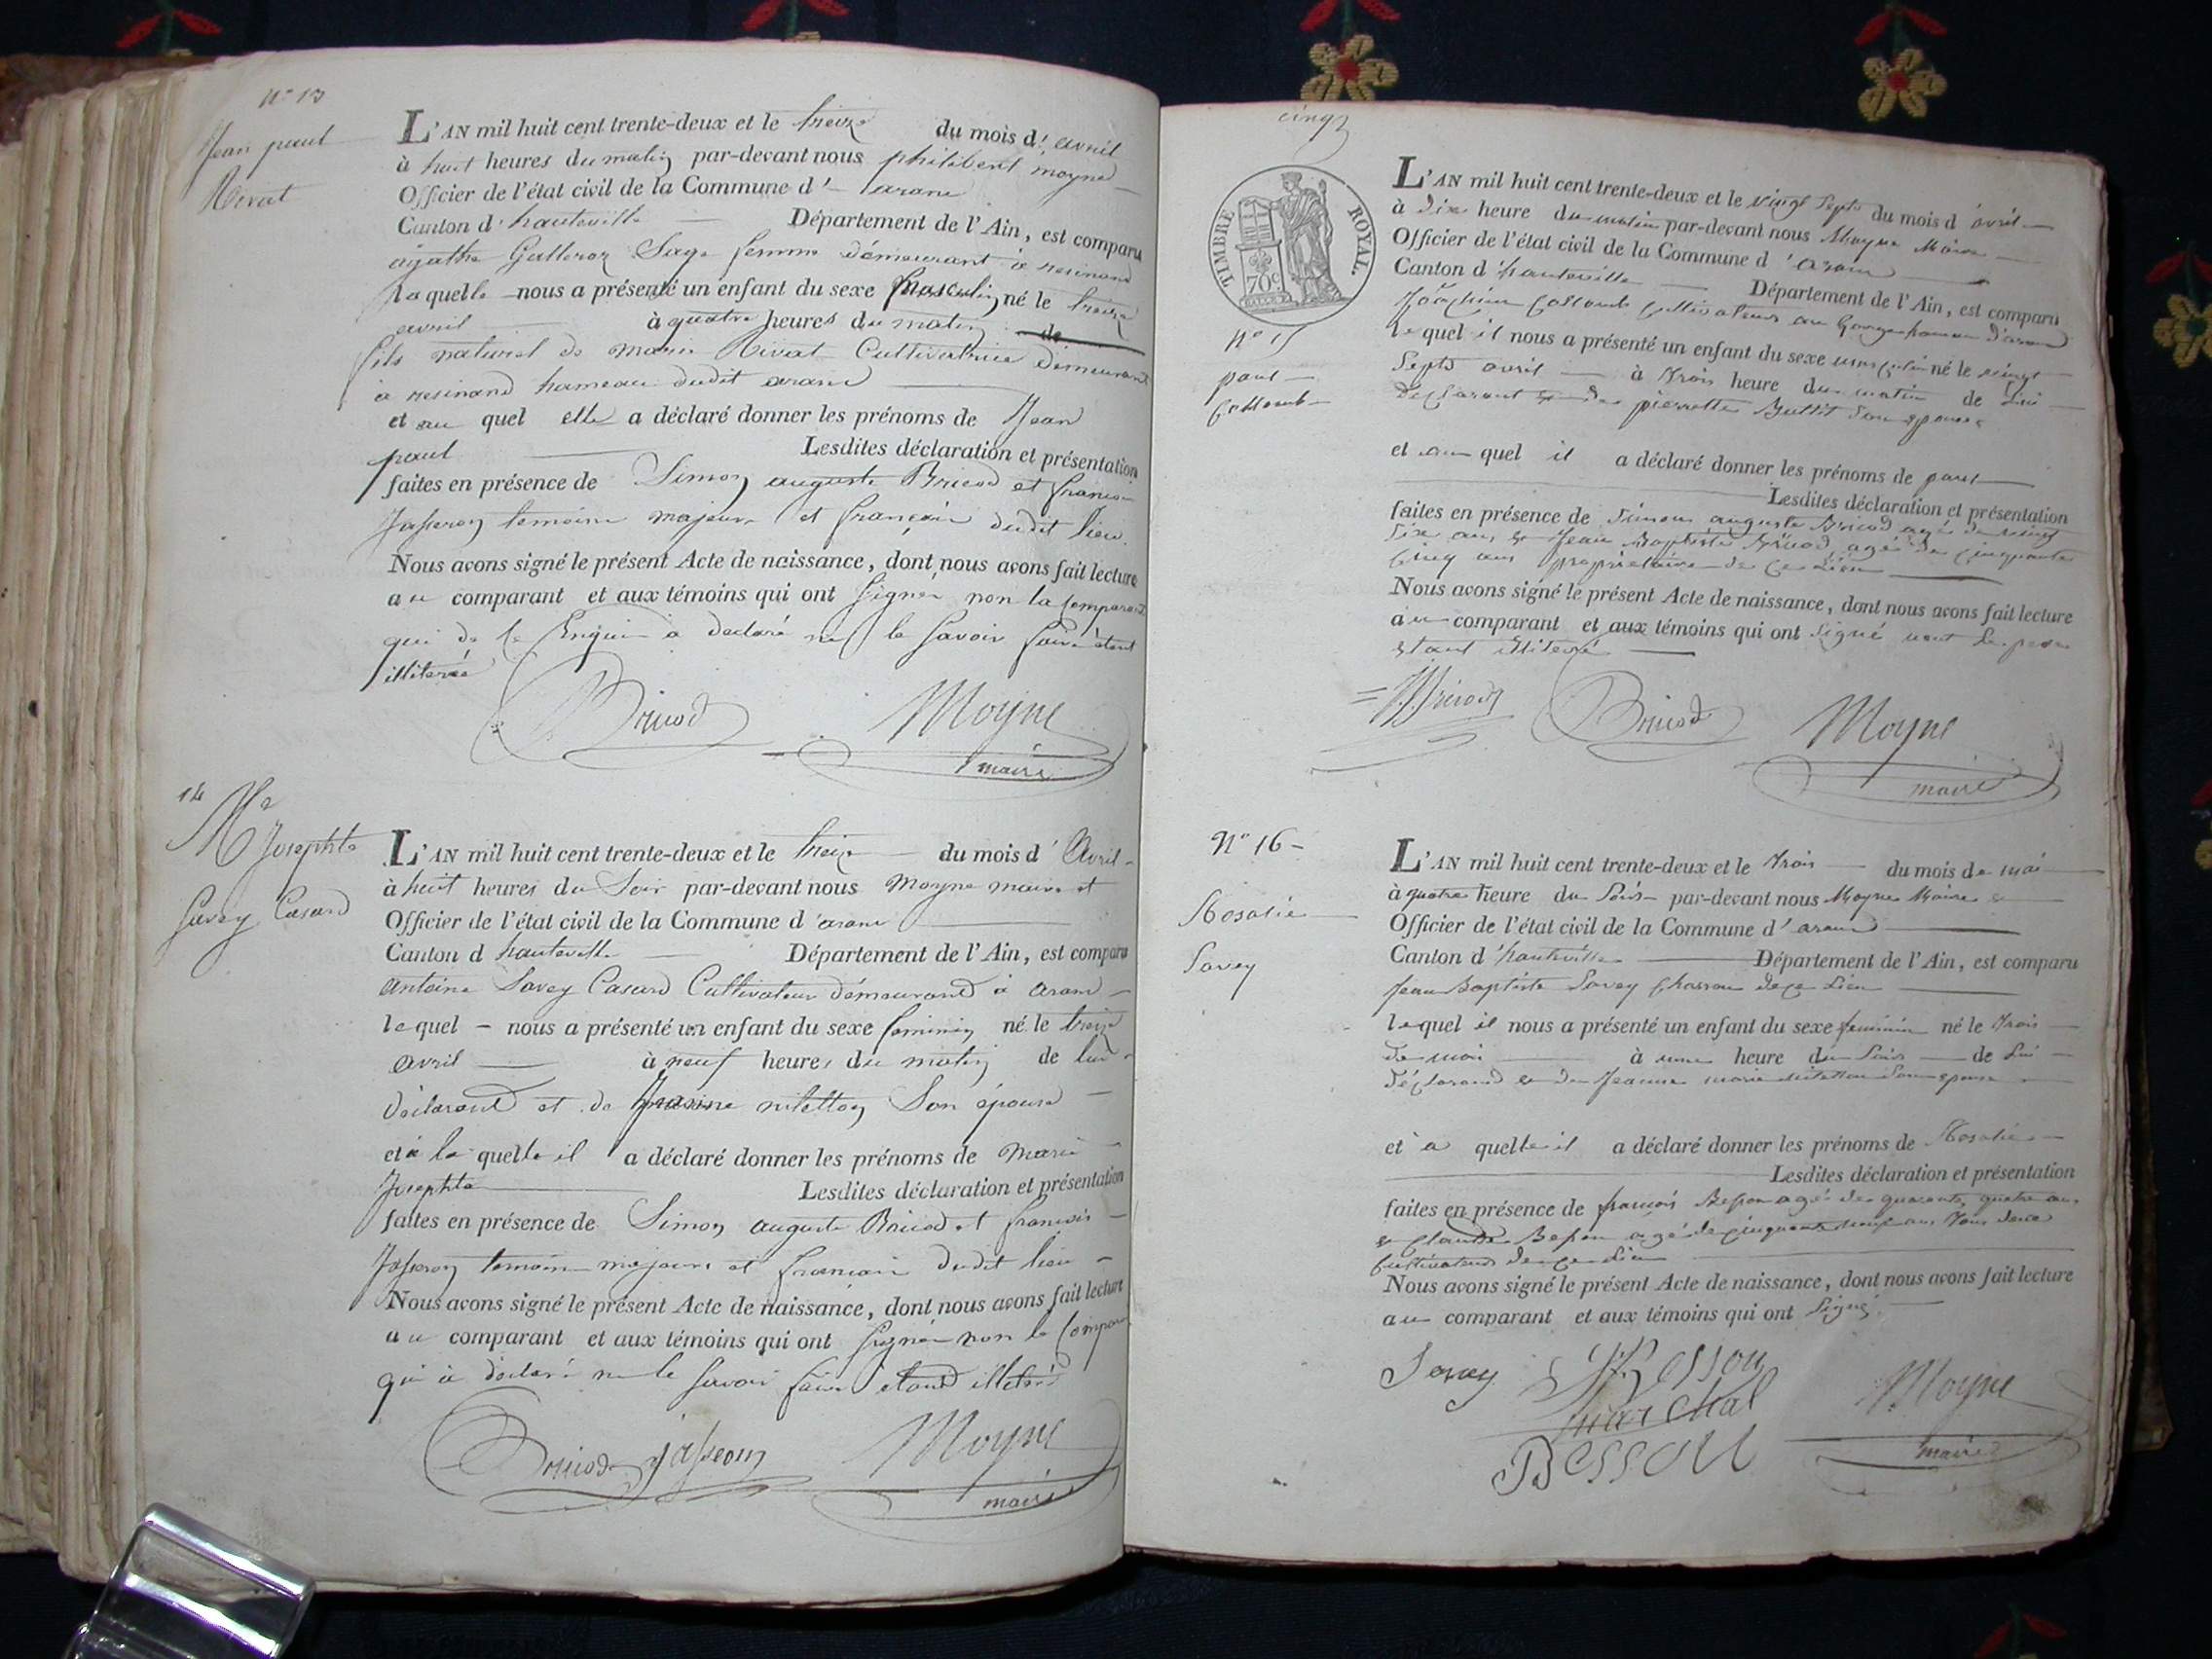 N° 13
Jean paul
Rivat
L'AN mil huit cent trente-deux et le treize du mois d' avril
à huit heures du matin par-devant nous philibert moyne
Officier de l'état civil de la Commune d' arane
Canton d' hauteville Département de l'Ain, est comparu
agathe Sage femme démeurant à resinand
la quelle nous a présenté un enfant du sexe masculin né le treize
avril à quatre heures du matin de
fils naturel de marie Rivat Cultivatrice démeurant
à resinand hameau dudit arane
et au quel elle a déclaré donner les prénoms de Jean
paul Lesdites déclaration et présentation
faites en présence de Simon auguste Bricod et francois
Jasseron temoins majeurs et français dudit lieu.
Nous avons signé le présent Acte de naissance, dont nous avons fait lecture
au comparant et aux témoins qui ont signés non la comparant
qui de ce Enquis a declaré ne le savoir faire étant
illiterée
Bricod Moyne
maire
14
Me Josephte
Savey Casard
L'AN mil huit cent trente-deux et le treize du mois d' Avril
à huit heures du Soir par-devant nous Moyne maire et
Officier de l'état civil de la Commune d' arane
Canton d hauteville Département de l'Ain, est comparu
antoine Savey Casard Cultivateur démeurand à arane
le quel nous a présenté un enfant du sexe feminin né le treize
avril à neuf heures du matin de lui
déclarant et de Son épouse
et à la quelle il a déclaré donner les prénoms de marie
Josephte Lesdites déclaration et présentation
faites en présence de Simon auguste Bricod et francois
Jasseron temoins majeurs et francais dudit lieu
Nous avons signé le présent Acte de naissance, dont nous avons fait lecture
au comparant et aux témoins qui ont signés non le compar
qui à déclaré ne le savoir faire étand illetré
Bricod Jasseron Moyne
maire
cinq
TIMBRE ROYAL.
70c
N° 15
paul
Collomb
L'AN mil huit cent trente-deux et le vingt Septs du mois d avril
à dix heure du matin par-devant nous Moyne Maire
Officier de l'état civil de la Commune d 'arane
Canton d 'hauteville Département de l'Ain, est comparu
Joachim Collomb Cultivateur au hameau d'arand
le quel il nous a présenté un enfant du sexe masculin né le vingt
Septs avril à trois heure du matin de Lui
déclarant et de pierrette Son epouse
et au quel il a déclaré donner les prénoms de paul
Lesdites déclaration et présentation
faites en présence de Simon auguste Bricod agé de vingt
Six ans et Jean Baptiste Bricod agé de cinquante
cinq ans propriétaire de ce Lieu
Nous avons signé le présent Acte de naissance, dont nous avons fait lecture
au comparant et aux témoins qui ont signé non le pere
etant illiteré
Bricod Bricod Moyne
maire
N° 16
Rosalie
Savey
L'AN mil huit cent trente-deux et le trois du mois de mai
à quatre heure du Soir par-devant nous Moyne Maire et
Officier de l'état civil de la Commune d' arand
Canton d 'hauteville Département de l'Ain, est comparu
Jean Baptiste Savey de ce Lieu
lequel il nous a présenté un enfant du sexe feminin né le trois
de mai à une heure du Soir de Lui
déclarand et de Jeanne marie Son epouse
et à quelle il a déclaré donner les prénoms de Rosalie
Lesdites déclaration et présentation
faites en présence de francois Besson agé de quarante quatre ans
et Claude Besson agé de cinquante neuf ans tous deux
Cultivateurs de ce Lieu
Nous avons signé le présent Acte de naissance, dont nous avons fait lecture
au comparant et aux témoins qui ont Signé.
Savey Besson Moyne
marechal
Besson maire